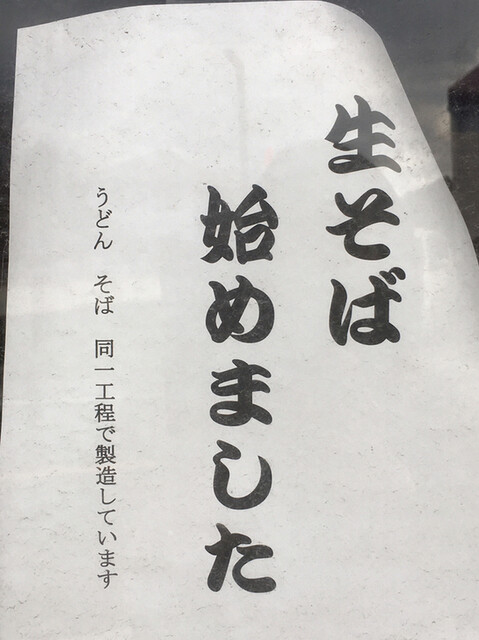 生そば
始めました
うどん そば 同一工程で製造しています